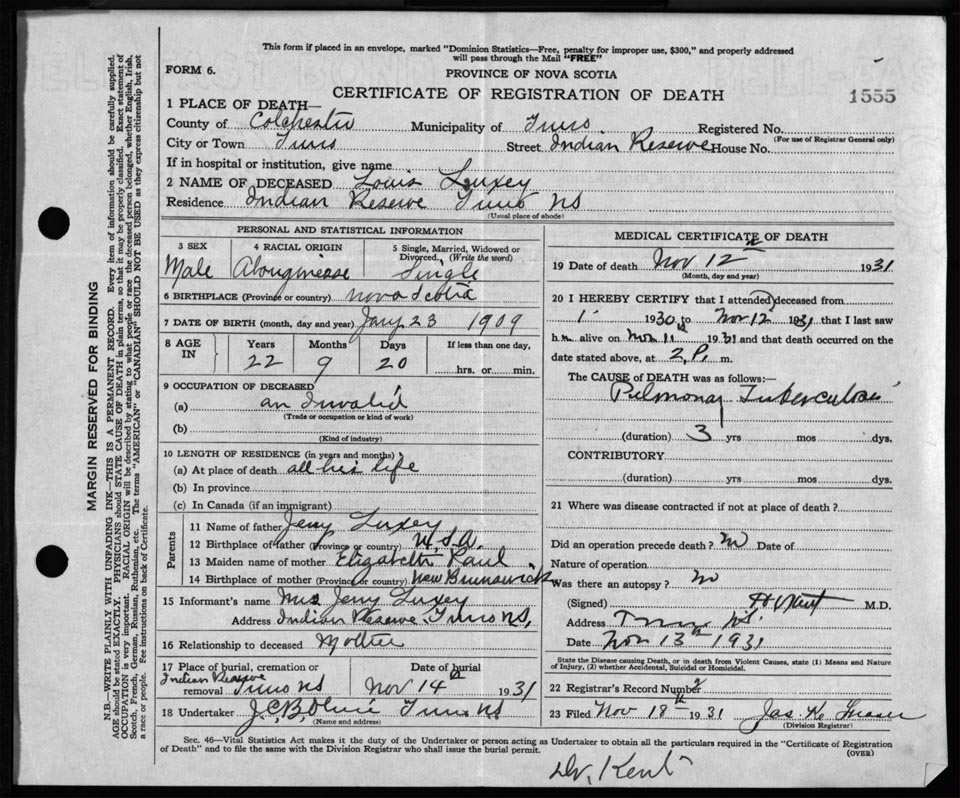 This form if placed in an envelope, marked "Dominion Statistics—Free, penalty for improper use, $300," and properly addressed
will pass through the Mail "FREE"
FORM 6.
PROVINCE OF NOVA SCOTIA
CERTIFICATE OF REGISTRATION OF DEATH
1555
1 PLACE OF DEATH—
County of Colchester Municipality of Truro Registered No.
(For use of Registrar General only)
City or Town Truro Street Indian Reserve House No.
If in hospital or institution, give name
2 NAME OF DECEASED Louis Luxey
Residence Indian Reserve Truro NS
(Usual place of abode)
PERSONAL AND STATISTICAL INFORMATION
3 SEX 4 RACIAL ORIGIN 5 Single, Married, Widowed or Divorced, (Write the word)
Male Single
6 BIRTHPLACE (Province or country) Nova Scotia
7 DATE OF BIRTH (month, day and year) Jany 23 1909
8 AGE IN Years Months Days If less than one day,
22 9 20 hrs. or min.
9 OCCUPATION OF DECEASED
(a) an Invalid
(Trade or occupation or kind of work)
(b)
(Kind of industry)
10 LENGTH OF RESIDENCE (in years and months)
(a) At place of death all his life
(b) In province
(c) In Canada (if an immigrant)
Parents
11 Name of father Jerry Luxey
12 Birthplace of father (Province or country) U.S.A.
13 Maiden name of mother Elizabeth Paul
14 Birthplace of mother (Province or country) New Brunswick
15 Informant's name Mrs Jerry Luxey
Address Indian Reserve Truro NS,
16 Relationship to deceased Mother
17 Place of burial, cremation or removal Indian Reserve Truro NS
Date of burial Nov 14th 1931
18 Undertaker Truro NS
(Name and address)
MEDICAL CERTIFICATE OF DEATH
19 Date of death Nov 12th 1931
(Month, day and year)
20 I HEREBY CERTIFY that I attended deceased from
1930 to Nov 12 1931 that I last saw
h m alive on Nov 11th 1931 and that death occurred on the
date stated above, at 2 P. m.
The CAUSE of DEATH was as follows:—
Pulmonary Tuberculosis
(duration) 3 yrs mos dys.
CONTRIBUTORY
(duration) yrs mos dys.
21 Where was disease contracted if not at place of death?
Did an operation precede death? no Date of
Nature of operation
Was there an autopsy? no
(Signed) H V Kent M.D.
Address Truro N.S.
Date Nov 13th 1931
State the Disease causing Death, or in death from Violent Causes, state (1) Means and Nature
of Injury, (2) whether Accidental, Suicidal or Homicidal.
22 Registrar's Record Number
23 Filed Nov 18th 1931 Jas K.
(Division Registrar)
Sec. 46—Vital Statistics Act makes it the duty of the Undertaker or person acting as Undertaker to obtain all the particulars required in the "Certificate of Registration
of Death" and to file the same with the Division Registrar who shall issue the burial permit.
(OVER)
Dr. Kent
MARGIN RESERVED FOR BINDING
N.B.—WRITE PLAINLY WITH UNFADING INK—THIS IS A PERMANENT RECORD. Every item of information should be carefully supplied.
AGE should be stated EXACTLY. PHYSICIANS should STATE CAUSE OF DEATH in plain terms, so that it may be properly classified. Exact statement of
OCCUPATION is very important. RACIAL ORIGIN will be described by stating to what people or race the deceased person belonged, whether English, Irish,
Scotch, French, German, Russian, Ruthenian, etc. The terms "AMERICAN" or "CANADIAN" SHOULD NOT BE USED as they express citizenship but not
a race or people. See instructions on back of Certificate.